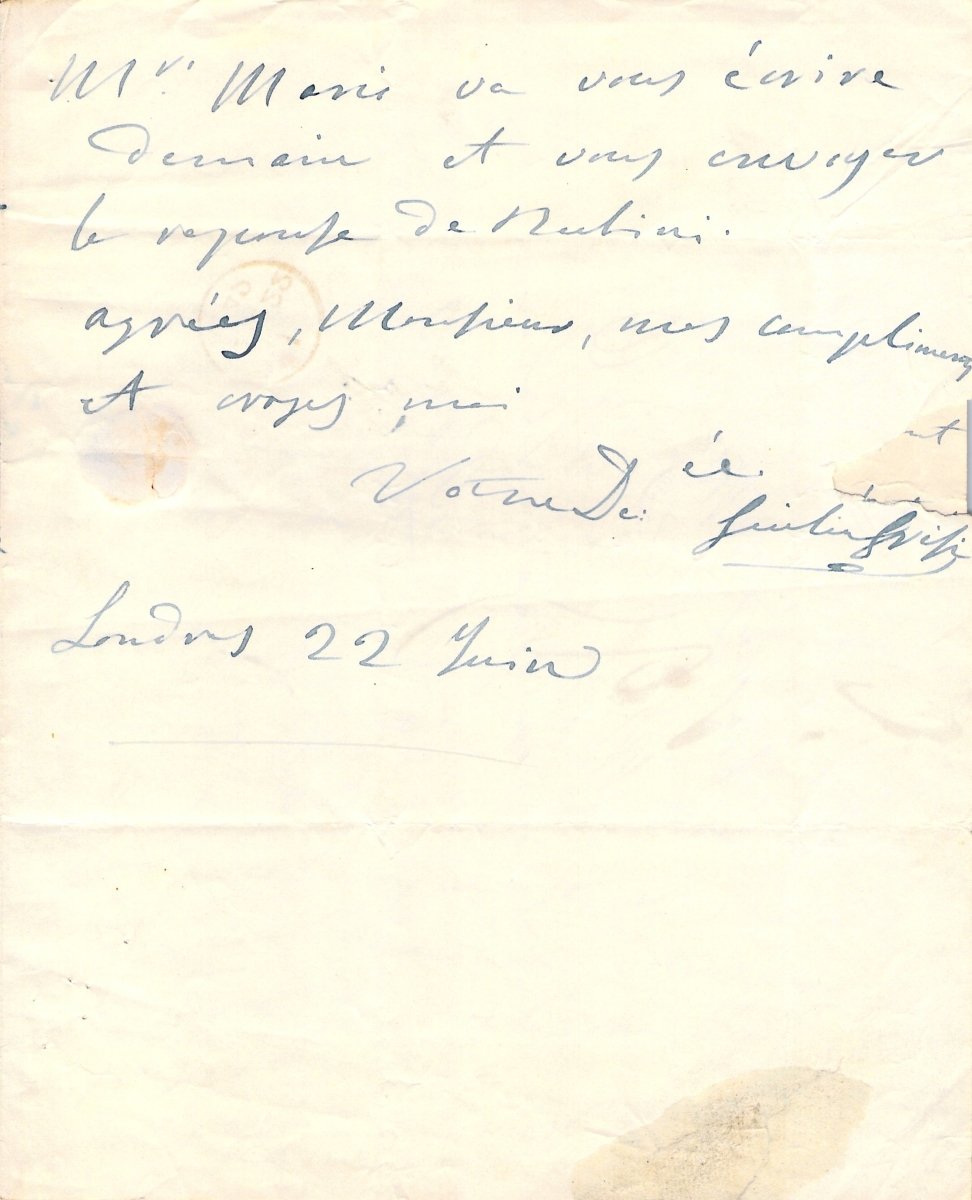 Mr. Mario va vous écrire
demain et vous envoyer
la reponse de Rubini.
agréez, Monsieur, mes compliments
et croyez moi
Votre Dée.
Giulia Grisi
Londres 22 Juin